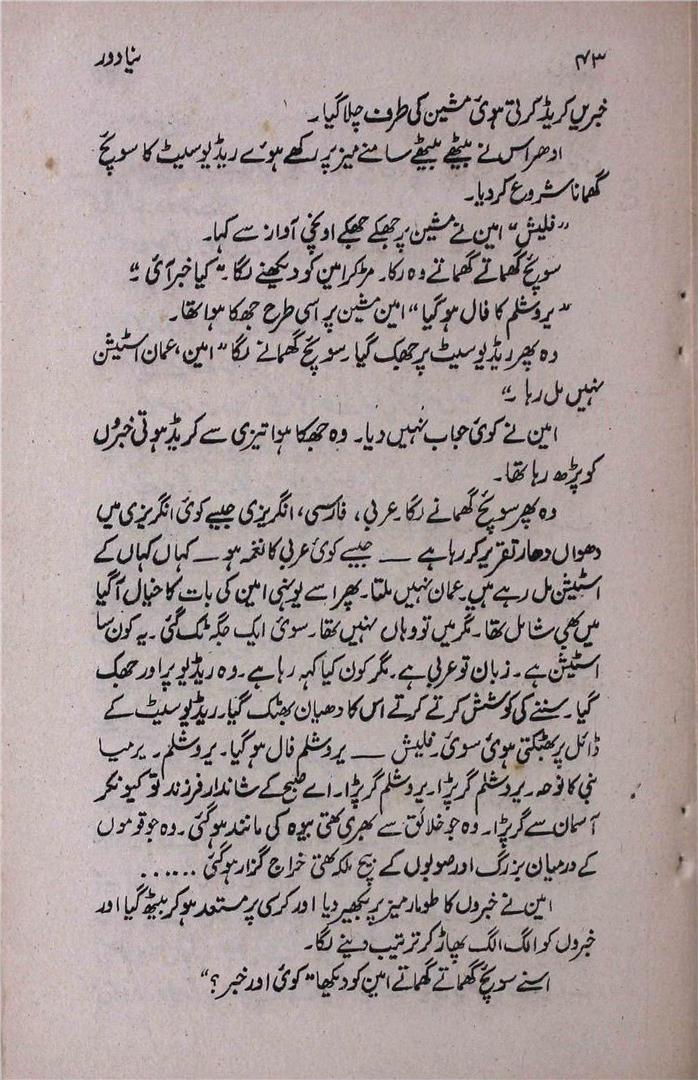 ۴۳ نیا دور
خبریں کریڈ کرتی ہوئی مشین کی طرف چلا گیا۔
ادھر اس نے بیٹھے بیٹھے سامنے میز پر رکھے ہوئے ریڈیو سیٹ کا سوئچ
گھمانا شروع کر دیا۔
"فلیش" امین نے مشین پر جھکے جھکے اونچی آواز سے کہا۔
سوئچ گھماتے گھماتے وہ رکا۔ مڑ کر امین کو دیکھنے لگا۔ "کیا خبر آئی۔"
"یروشلم کا فال ہو گیا" امین مشین پر اسی طرح جھکا ہوا تھا۔
وہ پھر ریڈیو سیٹ پر جھک گیا۔ سوئچ گھمانے لگا "امین، عمان اسٹیشن
نہیں مل رہا۔"
امین نے کوئی جواب نہیں دیا۔ وہ جھکا ہوا تیزی سے کریڈ ہوتی خبروں
کو پڑھ رہا تھا۔
وہ پھر سوئچ گھمانے لگا۔ عربی، فارسی، انگریزی جیسے کوئی انگریزی میں
دھواں دھار تقریر کر رہا ہے ــــ جیسے کوئی عربی کا نغمہ ہو ــ کہاں کہاں کے
اسٹیشن مل رہے ہیں۔ عمان نہیں ملتا۔ پھر اسے یونہی امین کی بات کا خیال آ گیا
میں بھی شامل تھا۔ مگر میں تو وہاں نہیں تھا۔ سوئی ایک جگہ ٹک گئی۔ یہ کون سا
اسٹیشن ہے۔ زبان تو عربی ہے۔ مگر کون کیا کہہ رہا ہے۔ وہ ریڈیو پر اور جھک
گیا۔ سننے کی کوشش کرتے کرتے اس کا دھیان بھٹک گیا۔ ریڈیو سیٹ کے
ڈائل پر بھٹکتی ہوئی سوئی۔ فلیش ــــ یروشلم فال ہو گیا۔ یروشلم۔ یرمیا
نبی کا نوحہ۔ یروشلم گر پڑا۔ یروشلم گر پڑا۔ اے صبح کے شاندار فرزند تو کیونکر
آسمان سے گر پڑا۔ وہ جو خلائق سے بھری تھی بیوہ کی مانند ہو گئی۔ وہ جو قوموں
کے درمیان بزرگ اور صوبوں کے بیچ ملکہ تھی خراج گزار ہو گئی ......
امین نے خبروں کا طومار میز پر بکھیر دیا اور کرسی پر مستعد ہو کر بیٹھ گیا اور
خبروں کو الگ الگ پھاڑ کر ترتیب دینے لگا۔
اسنے سوئچ گھماتے گھماتے امین کو دیکھا "کوئی اور خبر؟"